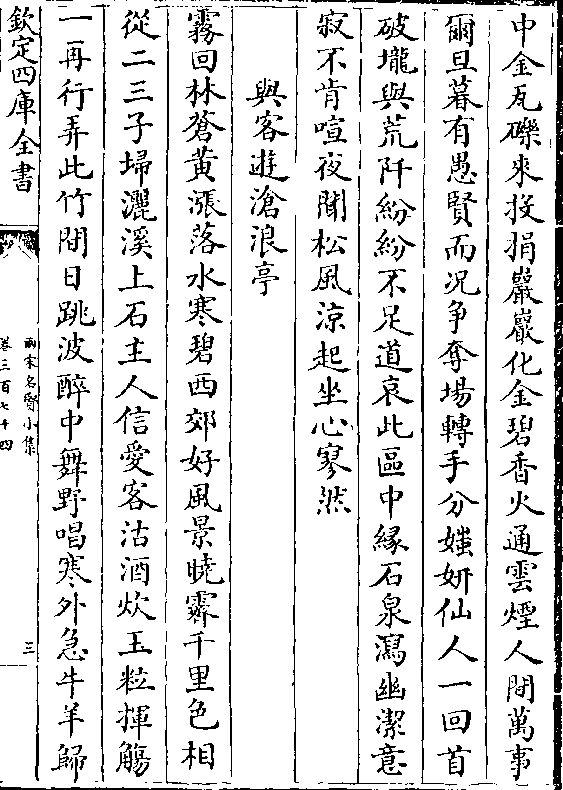 中金瓦礫來投捐巖巖化金碧香火通雲煙人間萬事
爾旦暮有愚賢而况争奪場轉手分媸妍仙人一回首
破壠與荒阡紛紛不足道哀此區中緣石泉瀉幽潔意
寂不肯喧夜聞松風涼起坐心寥泬
與客遊滄浪亭
霧回林蒼黃漲落水寒碧西郊好風景曉霽千里色相
從二三子埽灑溪上石主人信愛客沽酒炊玉粒揮觴
一再行弄此竹間日跳波醉中舞野唱寒外急牛羊歸
欽定四庫全書
兩宋名賢小集
卷三百七十四
三